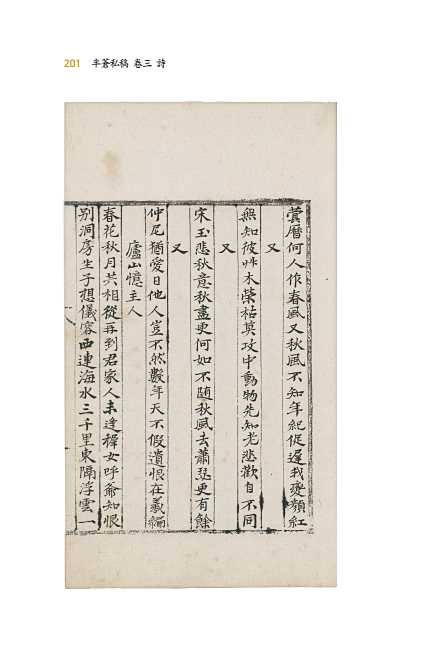 201 半蒼私稿 卷三 詩
蓂曆何人作春風又秋風不知年紀促遲我變顏紅
又
無知彼艸木榮枯莫攻中動物先知老悲歡自不同
又
宋玉悲秋意秋盡更何如不随秋風去蕭瑟更有餘
又
仲尼猶愛日他人豈不然數年天不假遺恨在羲編
廬山憶主人
春花秋月共相從再到君家人未逢稺女呼爺知恨
别洞房生子想儀容西連海水三千里東隔浮雲一